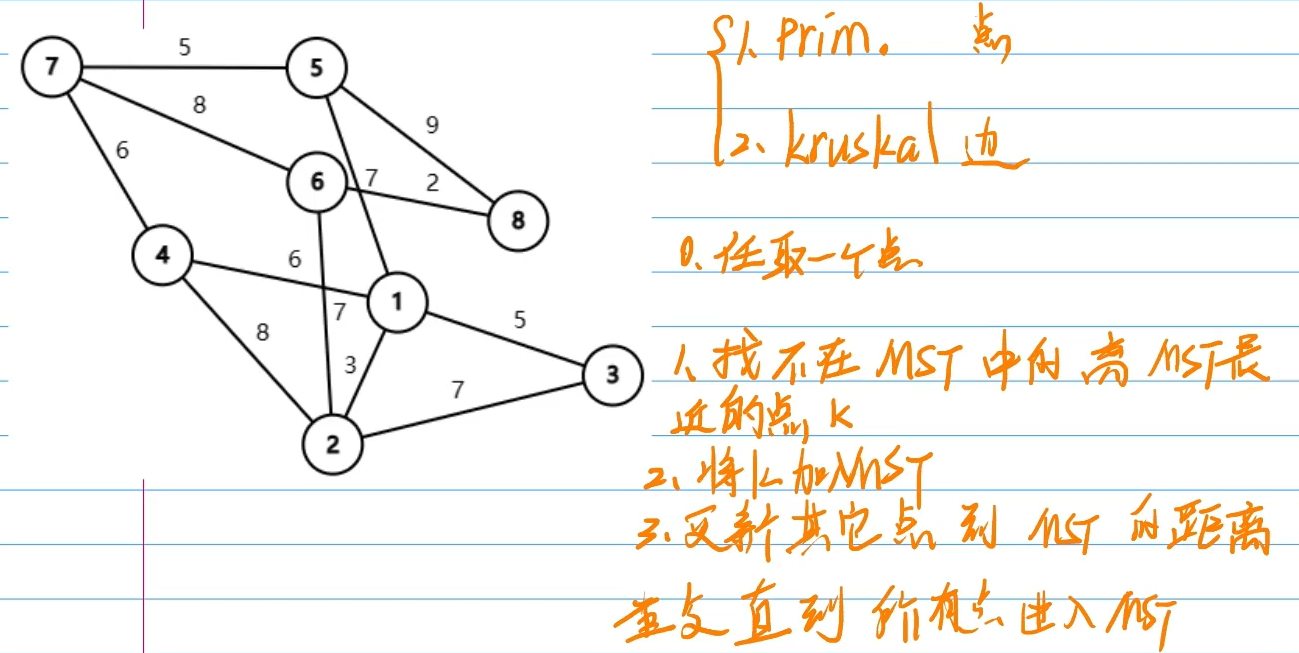 7
5
5
8
9
6
6
7
2
8
4
6
1
7
5
8
3
3
7
2
1、Prim. 点
2、kruskal 边
0、任取一个点
1、找不在 MST 中的离 MST最
近的点 K
2、将K加入MST
3、更新其它点到 MST 的距离
直到所有点进入 MST